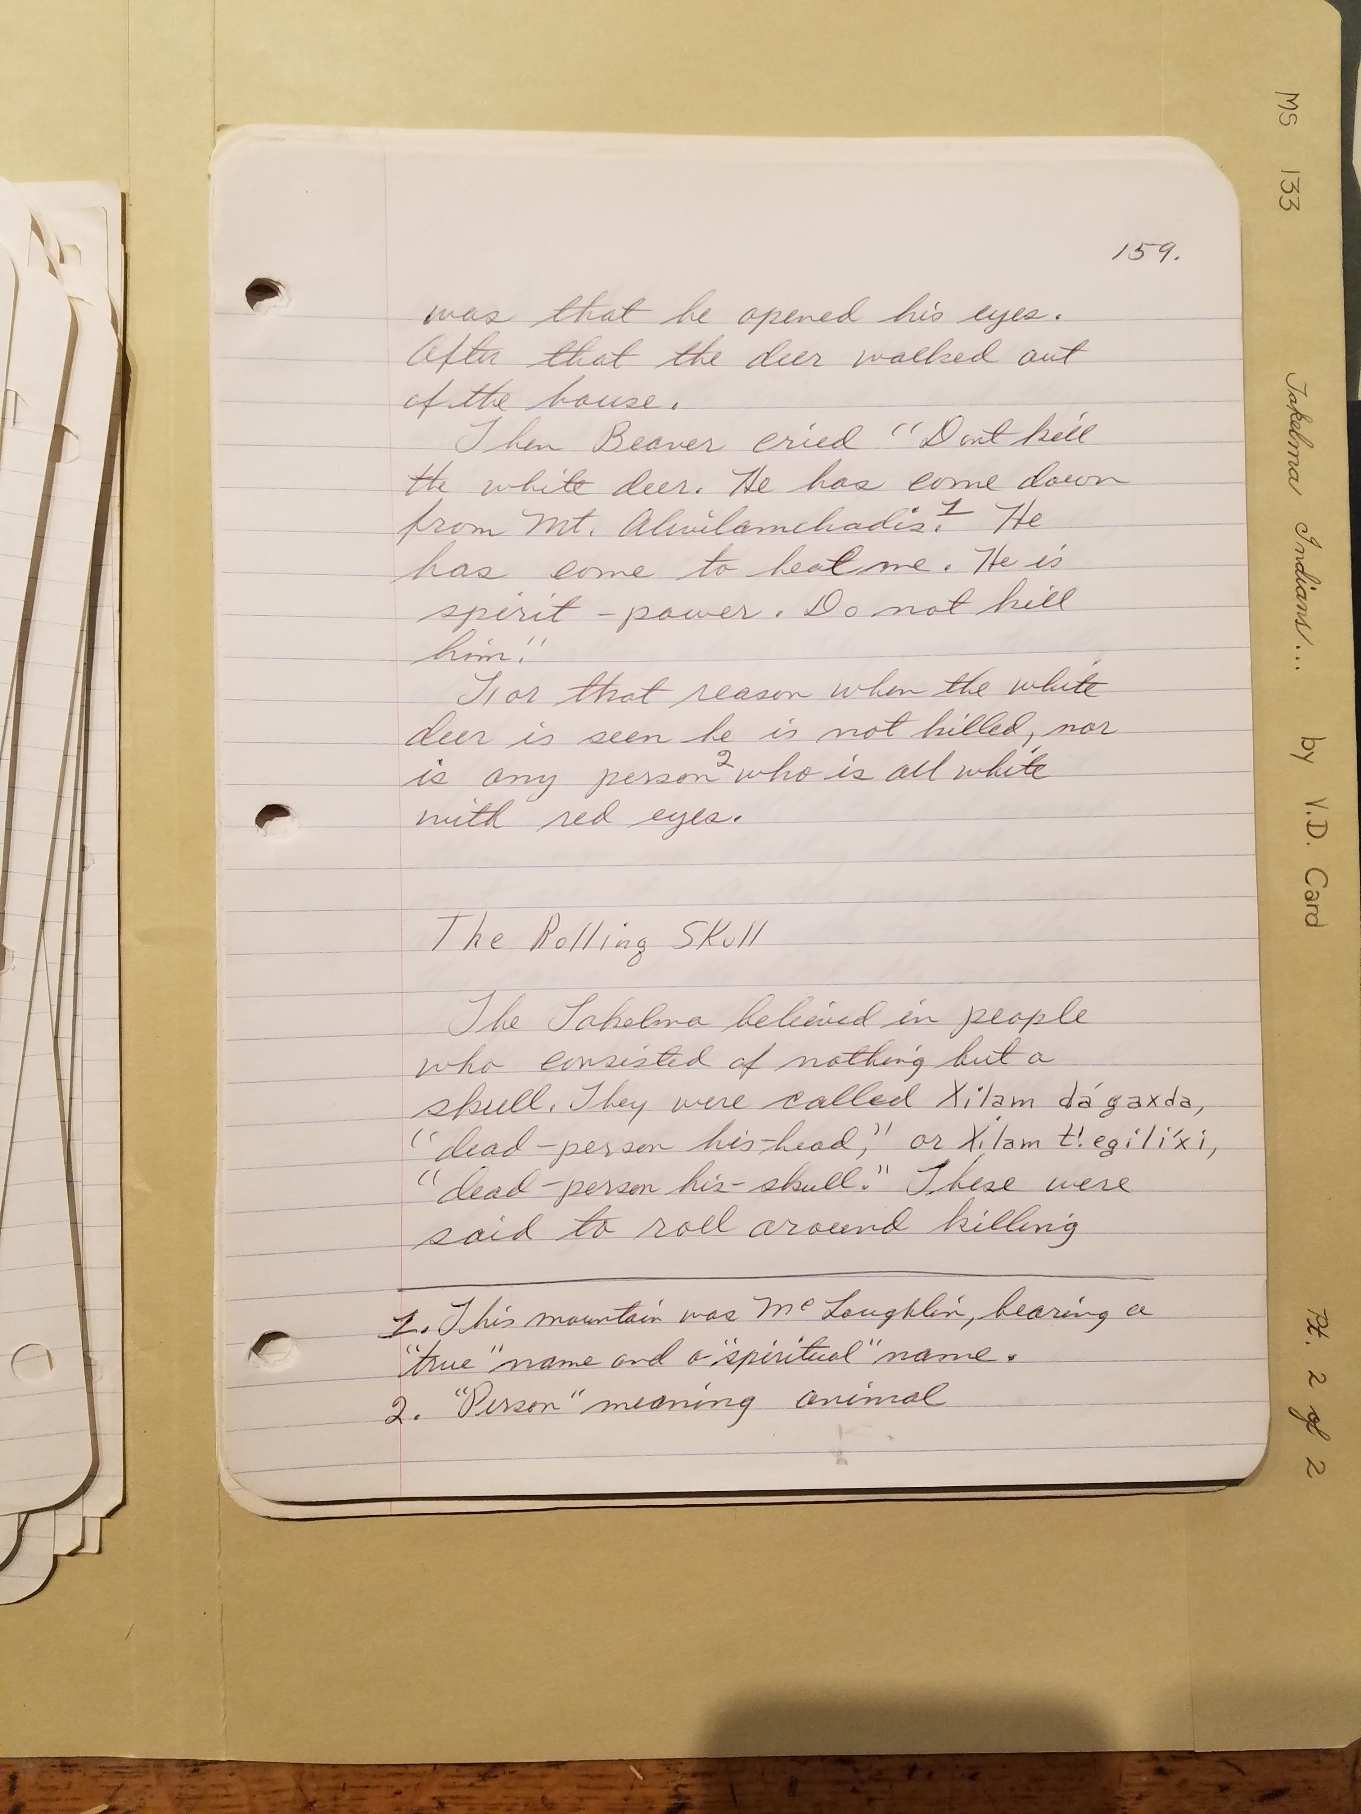 159.
was that he opened his eyes.
After that the deer walked out
of the house.
Then Beaver cried "Dont kill
the white deer. He has come down
from Mt. Alwilamchadis.¹ He
has come to heal me. He is
spirit-power. Do not kill
him."
For that reason when the white
deer is seen he is not killed, nor
is any person² who is all white
with red eyes.
The Rolling Skull
The Takelma believed in people
who consisted of nothing but a
skull. They were called Xilam dá gaxda,
"dead-person his-head," or Xilam t!egilíxi,
"dead-person his-skull." These were
said to roll around killing
1. This mountain was Mc Loughlin, bearing a
"true" name and a "spiritual" name.
2. "Person" meaning animal
MS 133 Takelma Indians... by V.D. Card Pt. 2 of 2